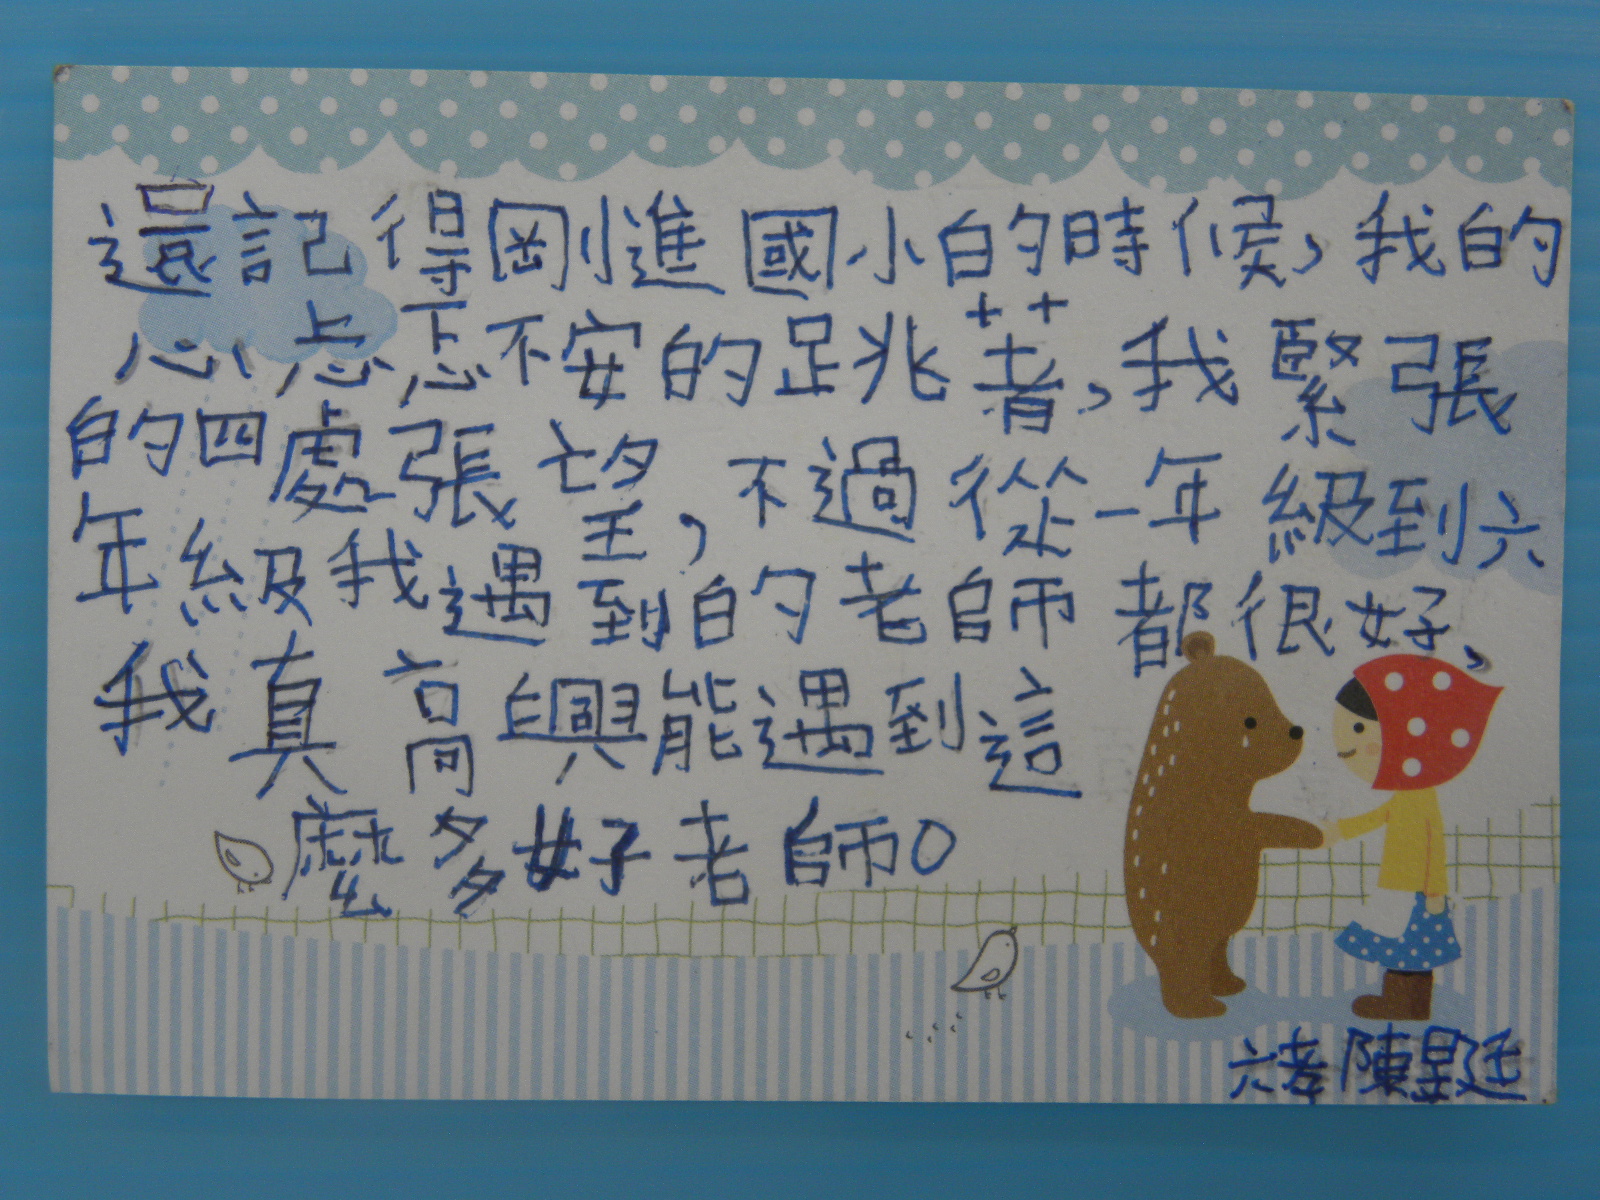 還記得剛進國小的時候,我的
心忐忑不安的跳著,我緊張
的四處張望,不過從一年級到六
年級我遇到的老師都很好,
我真高興能遇到這
麼多好老師。
六孝 陳昱廷